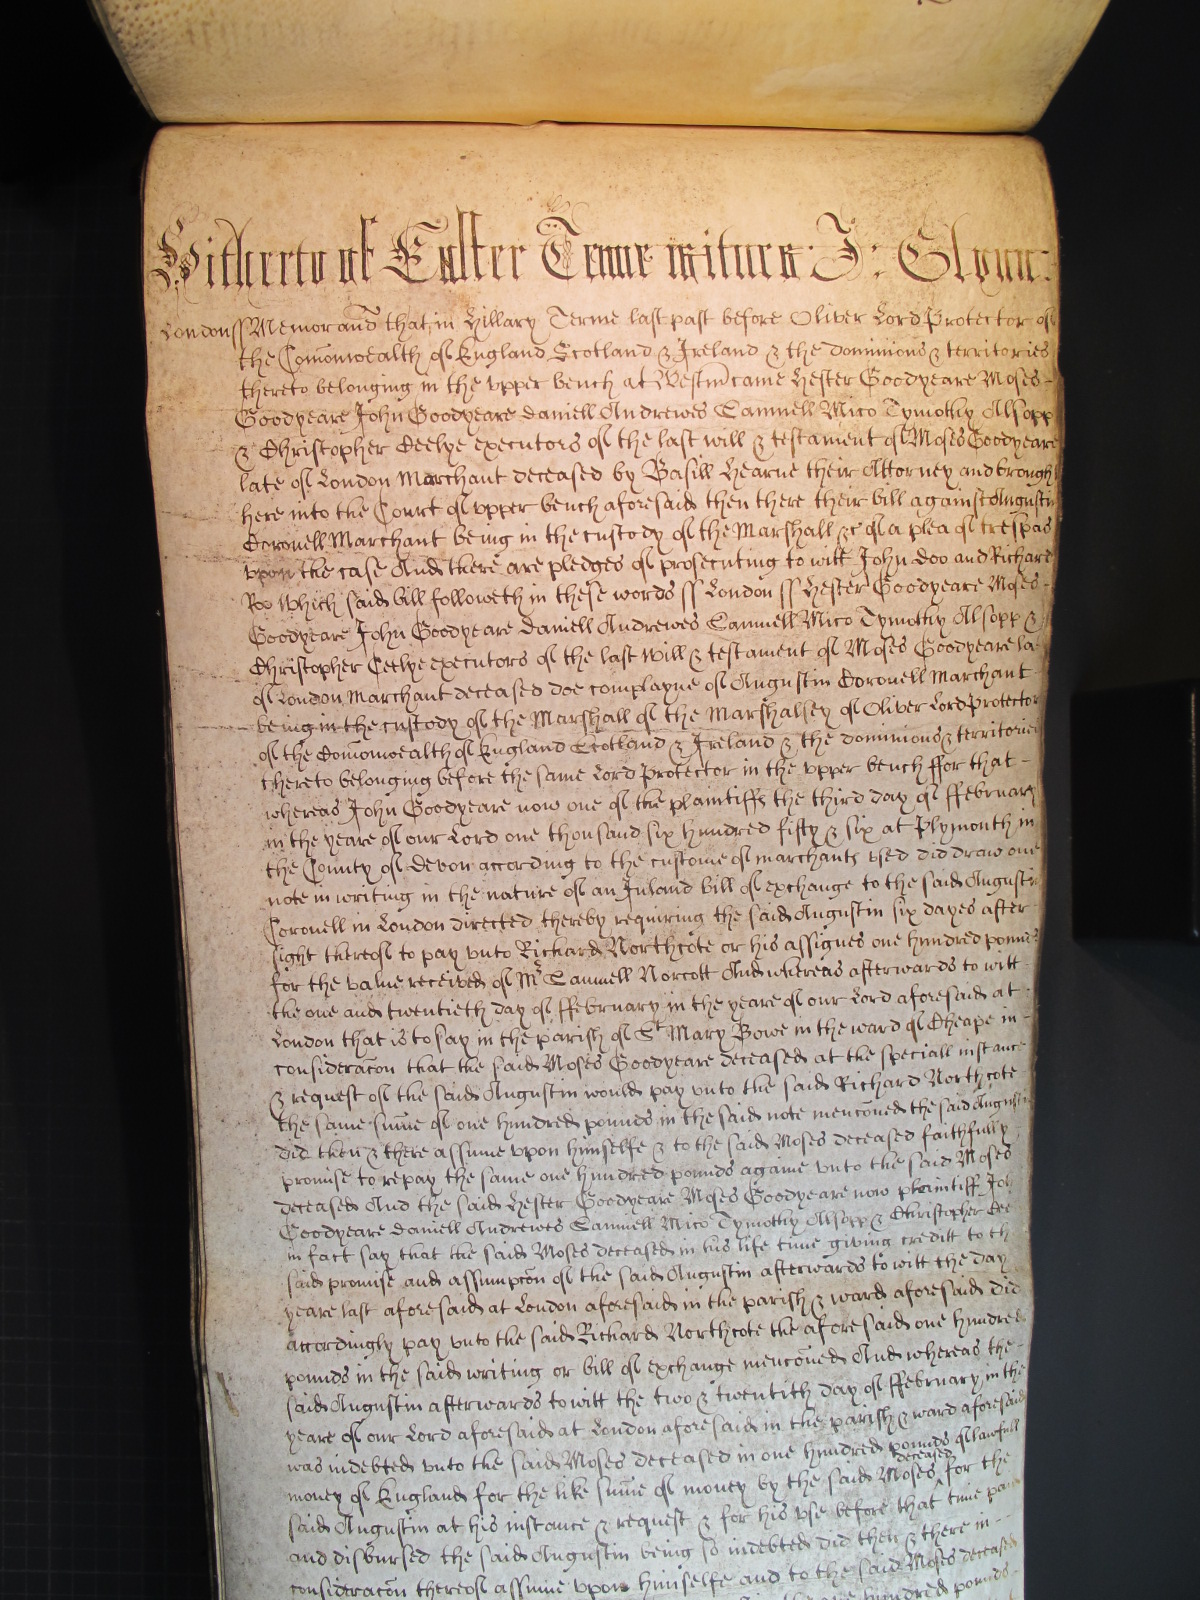 Hitherto of Easter Terme witnes J: Glynn:
London ss Memorand that in Hillary Terme last past before Oliver Lord Protector of
the Comonwealth of England Scotland & Ireland & the dominions & territories
thereto belonging in the upper bench at Westm came Hester Goodyeare Moses -
Goodyeare John Goodyeare Daniell Andrewes Samuell Mico Tymothy Alsopp
& Christopher Ceelye executors of the last will & testament of Moses Goodyeare
late of London Marchant deceased by Basill Hearne their Attorney and brought
here into the Court of upper bench aforesaid then there their bill against Augustin
Coronell Marchant being in the custody of the Marshall &c of a plea of trespas
upon the case And there are pledges of prosecuting to witt John Doo and Richard
Roo Which said bill followeth in these words ss London ss Hester Goodyeare Moses -
Goodyeare John Goodyeare Daniell Andrewes Samuell Mico Tymothy Alsopp &
Christopher Ceelye executors of the last will & testament of Moses Goodyeare la
of London Marchant deceased doe complayne of Augustin Coronell Marchant
being in the custody of the Marshall of the Marshalsey of Oliver Lord Protector
of the Comonwealth of England Scotland & Ireland & the dominions & territories
thereto belonging before the same Lord Protector in the upper bench ffor that -
whereas John Goodyeare now one of the plaintiffs the third day of ffebruary
in the yeare of our Lord one thousand six hundred fifty & six at Plymouth in
the County of Devon according to the custome of marchants used did draw one
note in writing in the nature of an Inland bill of exchange to the said Augustin
Coronell in London directed thereby requiring the said Augustin six dayes after
sight thereof to pay unto Richard Northcote or his assignes one hundred pounds
for the value received of Mr Samuell Norcott And whereas afterwards to witt
the one and twentieth day of ffebruary in the yeare of our Lord aforesaid at
London that is to say in the parish of St Mary Bowe in the ward of Cheape in -
consideracon that the said Moses Goodyeare deceased at the speciall instance
& request of the said Augustin would pay unto the said Richard Northcote
the same sume of one hundred pounds in the said note menconed the said Augustin
did then & there assume upon himselfe & to the said Moses deceased faithfully
promise to repay the same one hundred pounds againe unto the said Moses
deceased And the said Hester Goodyeare Moses Goodyeare now plaintiff Joh
Goodyeare Daniell Andrewes Samuell Mico Tymothy Alsopp & Christopher Cee
in fact say that the said Moses deceased in his life time giving creditt to th
said promise and assumpcon of the said Augustin afterwards to witt the day
yeare last aforesaid at London aforesaid in the parish & ward aforesaid did
accordingly pay unto the said Richard Northcote the aforesaid one hundred
pounds in the said writing or bill of exchange menconed And whereas the -
said Augustin afterwards to witt the two & twentith day of ffebruary in the
yeare of our Lord aforesaid at London aforesaid in the parish & ward aforesaid
was indebted unto the said Moses deceased in one hundred pounds of lawfull
money of England for the like sume of money by the said Moses deceased for the
said Augustin at his instance & request & for his use before that time paid
and disbursed the said Augustin being so indebted did then & there in - -
consideracon thereof assume upon himselfe and to the said Moses deceased
hundred pounds -